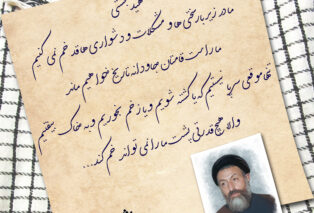 شهید بهشتی
ما در زیر بار سختی ها و مشکلات و دشواری ها قد خم نمی کنیم
ما راست قامتان جاودانه تاریخ خواهیم ماند
تنها موقعی سرپا نیستیم که یا کشته شویم و یا زخم بخوریم و به خاک بیفتیم
والا هیچ قدرتی پشت ما را نمی تواند خم کند...